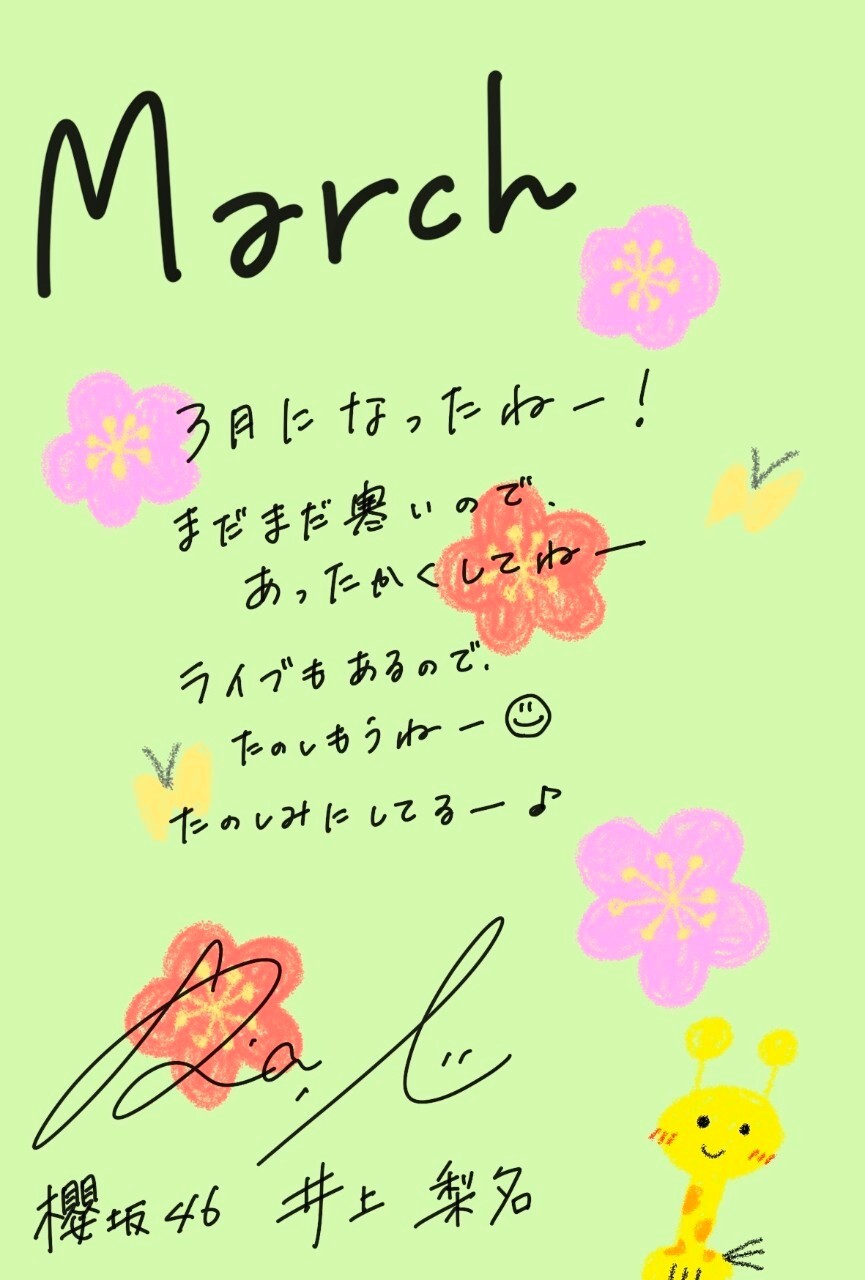 March
3月になったねー！
まだまだ寒いので、
あったかくしてねー
ライブもあるので、
たのしもうねー
たのしみにしてるー♪
櫻坂46 井上 梨名